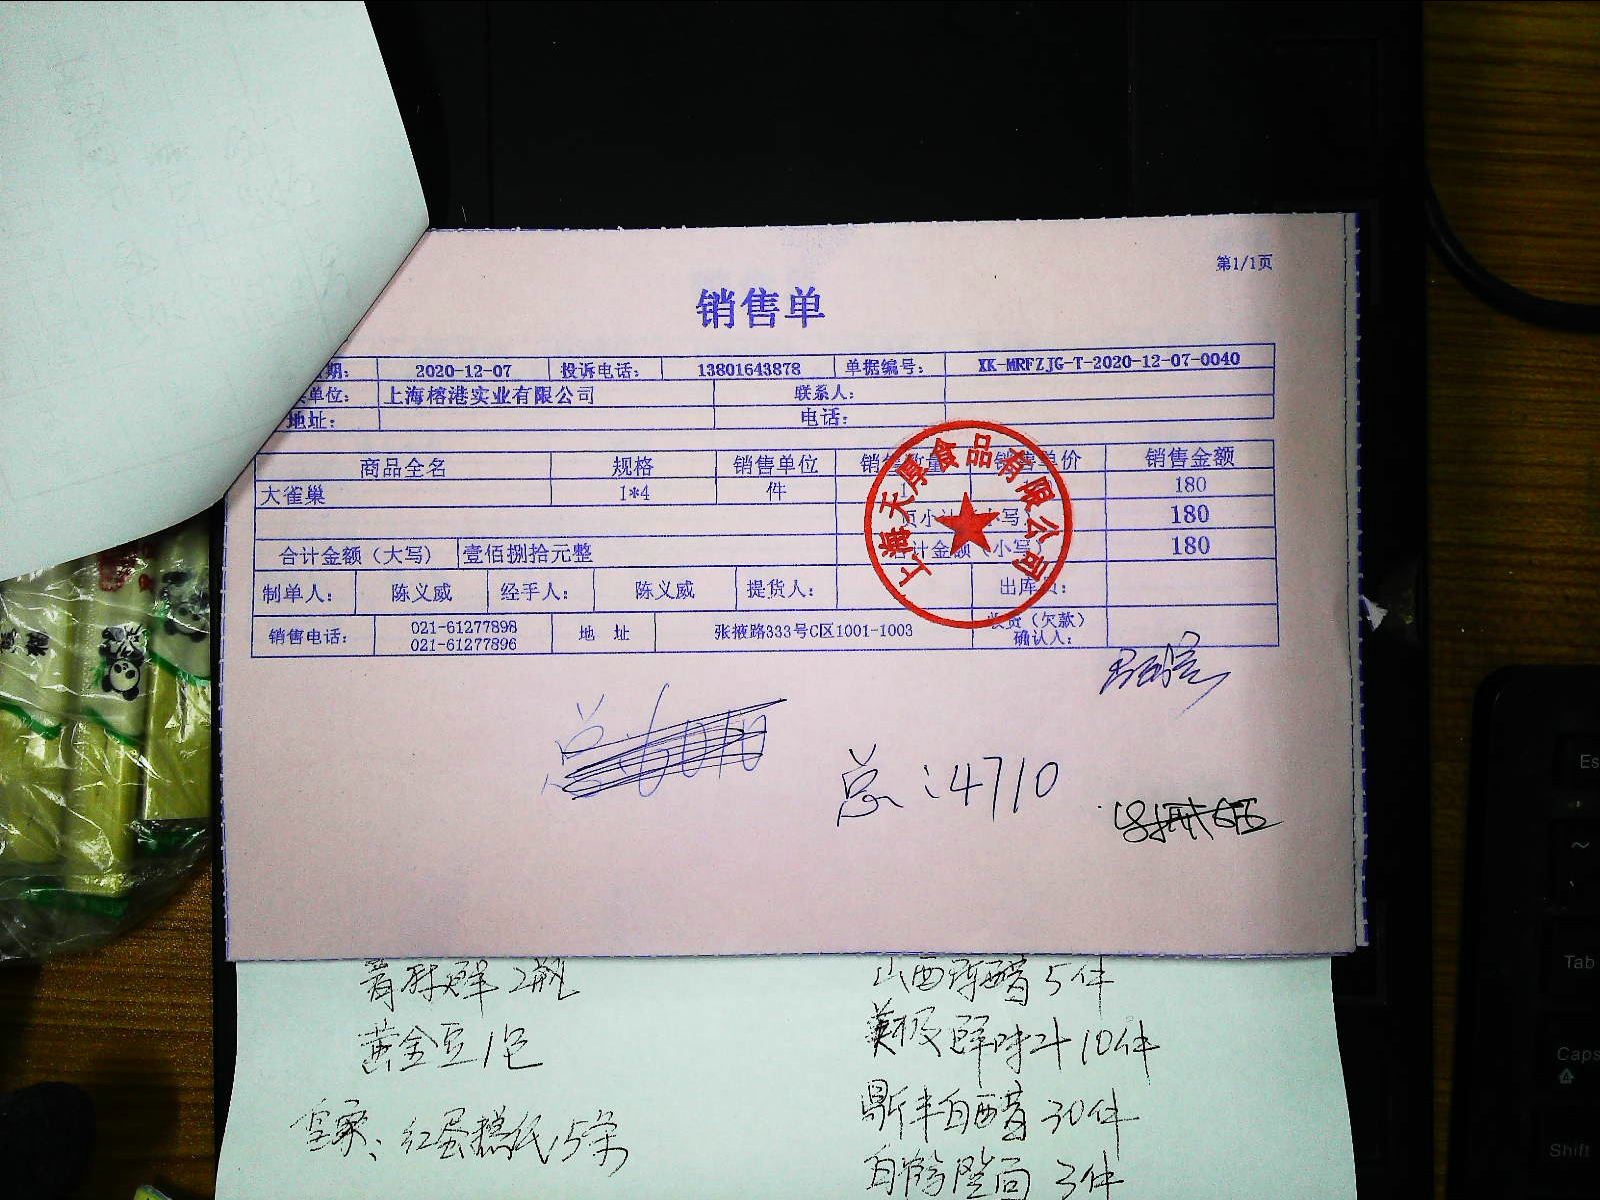 第1/1页
销售单
期： 2020-12-07 投诉电话： 13801643878 单据编号： XK-MRFZJG-T-2020-12-07-0040
单位： 上海榕港实业有限公司 联系人：
地址： 电话：
商品全名 规格 销售单位 销售数量 销售单价 销售金额
大雀巢 1*4 件 1 180
页小计（小写） 180
合计金额（大写） 壹佰捌拾元整 合计金额（小写） 180
制单人： 陈义威 经手人： 陈义威 提货人： 出库员：
销售电话： 021-61277898 021-61277896 地 址 张掖路333号C区1001-1003 收货（欠款）确认人：
上海天厚食品有限公司
总：4710
2瓶
山西陈醋5件
黄金豆1包
美极鲜味汁10件
红蛋糕纸15条
白醋30件
3件
Es
~
Tab
Caps
Shift